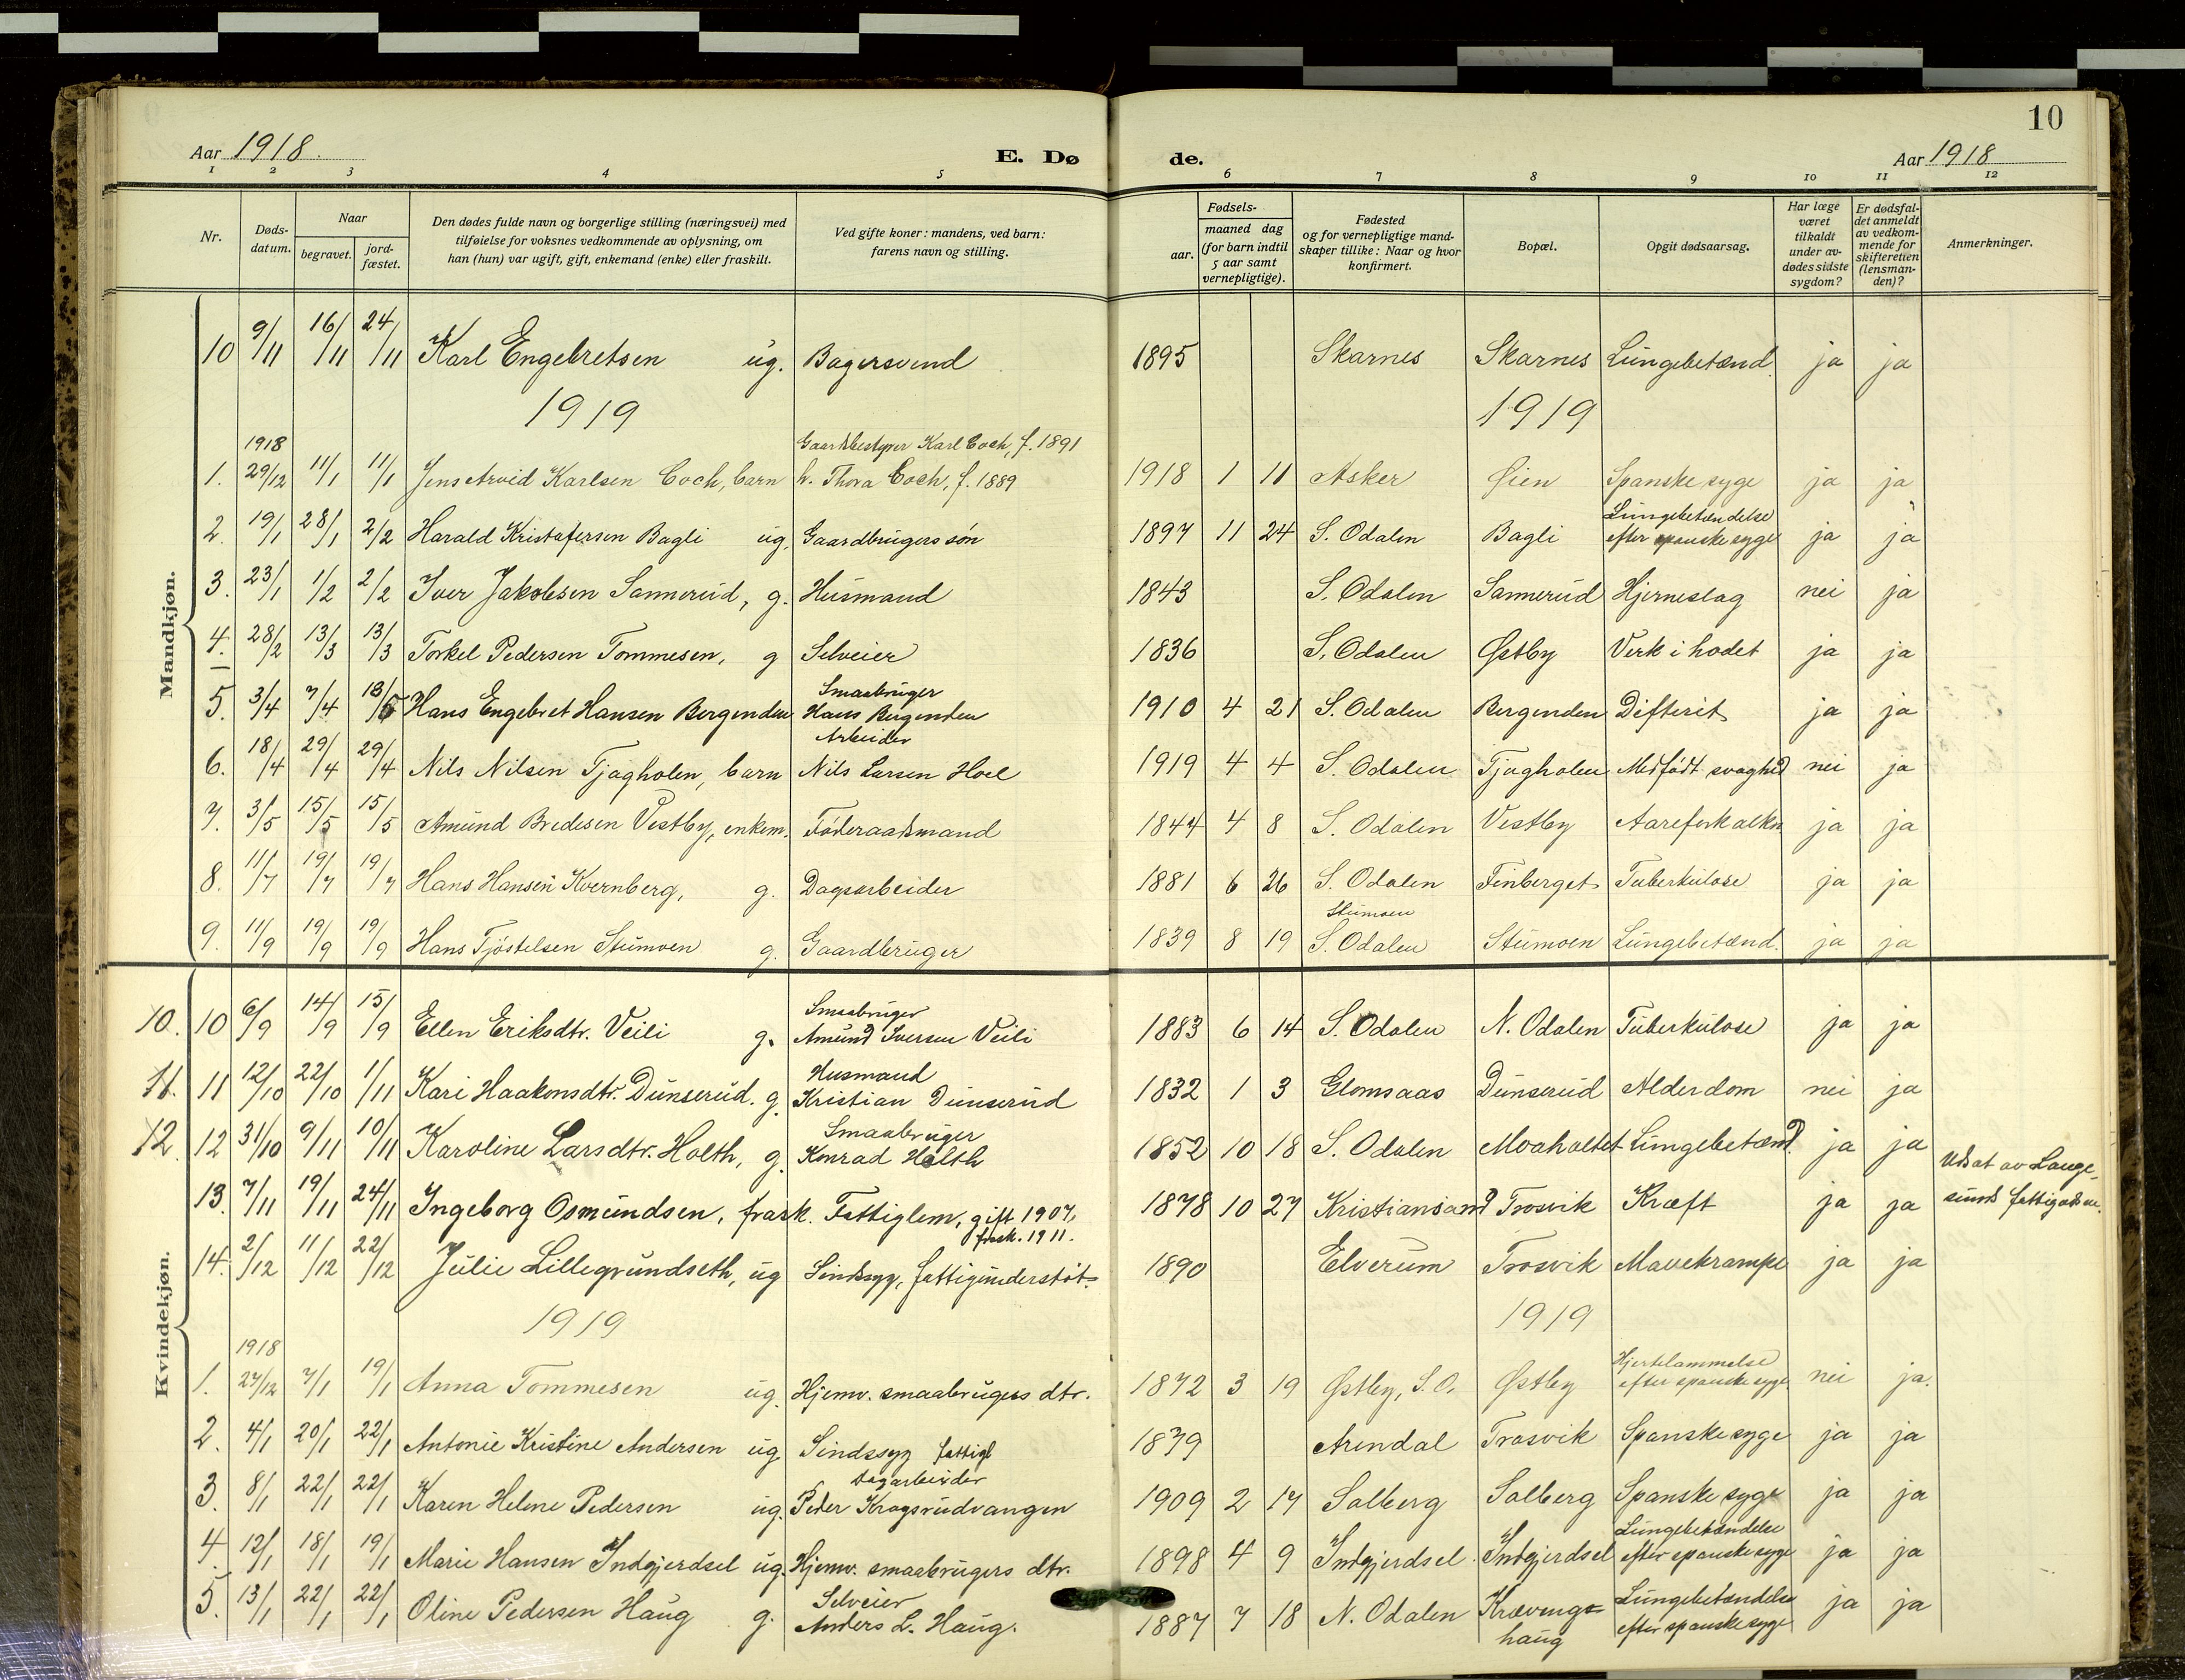 10
Aar 1918. E. Dø de. Aar 1918
1 2 3 4 5 6 7 8 9 10 11 12
Nr. Døds-datum. Naar begravet. jord-fæstet. Den dødes fulde navn og borgerlige stilling (næringsvei) med tilføielse for voksnes vedkommende av oplysning, om han (hun) var ugift, gift, enkemand (enke) eller fraskilt. Ved gifte koner: mandens, ved barn: farens navn og stilling. aar. Fødsels- maaned dag (for barn indtil 5 aar samt vernepligtige). Fødested og for vernepligtige mand-skaper tillike: Naar og hvor konfirmert. Bopæl. Opgit dødsaarsag. Har læge været tilkaldt under av-dødes sidste sygdom? Er dødsfal-det anmeldt av vedkom-mende for skifteretten (lensman-den)? Anmerkninger.
Mandkjøn.
10 9/11 16/11 24/11 Karl Engebretsen ug. Bagersvend 1895 Skarnes Skarnes Lungebetænd. ja ja
1919 1919
1918 Gaardsbestyrer Karl Coch, f. 1891
1. 29/12 11/1 11/1 Jens Arvid Karlsen Coch, barn h. Thora Coch, f. 1889 1918 1 11 Asker Øien Spanske syge ja ja
Lungebetændelse
2. 19/1 28/1 2/2 Harald Kristofersen Bagli ug. Gaardbrugers søn 1897 11 24 S. Odalen Bagli efter spanske syge ja ja
3. 23/1 1/2 2/2 Iver Jakobsen Sannerud, g. Husmand 1843 S. Odalen Sannerud Hjerneslag nei ja
4. 28/2 13/3 13/3 Torkel Pedersen Tommesen, g Selveier 1836 S. Odalen Østby Verk i hodet ja ja
Smaabruger
5. 3/4 7/4 18/5 Hans Engebret Hansen Bergenden Hans Bergenden 1910 4 21 S. Odalen Bergenden Difterit ja ja
Arbeider
6. 18/4 29/4 29/4 Nils Nilsen Tjagholen, barn Nils Larsen Hoel 1919 4 4 S. Odalen Tjagholen Medfødt svaghed nei ja
7. 3/5 15/5 15/5 Amund Bredesen Vestby, enkem. Føderaadsmand 1844 4 8 S. Odalen Vestby Aareforkalkn ja ja
8. 11/7 19/7 19/7 Hans Hansen Kvernberg, g. Dagsarbeider 1881 6 26 S. Odalen Finberget Tuberkulose ja ja
Stumoen
9. 11/9 19/9 19/9 Hans Tjøstelsen Stumoen g. Gaardbruger 1839 8 19 S. Odalen Stumoen Lungebetænd. ja ja
Kvindekjøn.
Smaabruger
10. 10 6/9 14/9 15/9 Ellen Eriksdtr. Veili g. Amund Iversen Veili 1883 6 14 S. Odalen N. Odalen Tuberkulose ja ja
Husmand
11. 11 12/10 22/10 1/11 Kari Haakonsdtr. Dunserud. g. Kristian Dunserud 1832 1 3 Glomsaas Dunserud Alderdom nei ja
Smaabruger
12. 12 31/10 9/11 10/11 Karoline Larsdtr. Holth, g. Konrad Holth 1852 10 18 S. Odalen Moaholtet Lungebetænd. ja ja
Udsat av Lange-
13. 7/11 19/11 24/11 Ingeborg Osmundsen, frask. Fattiglem, gift 1907, 1878 10 27 Kristiansand Trosvik Kræft ja ja sunds fattigvæsen.
frask. 1911.
14. 2/12 11/12 22/12 Julie Lillegrundseth, ug Sindssyg, fattigunderstøt- 1890 Elverum Trosvik Mavekrampe ja ja
1919 1919
1918 Hjertelammelse
1. 27/12 7/1 19/1 Anna Tommesen ug. Hjemv. smaabrugers dtr. 1872 3 19 Østby, S.O. Østby efter spanske syge nei ja.
2. 4/1 20/1 22/1 Antonie Kristine Andersen ug Sindssyg fattigl 1879 Arendal Trosvik Spanske syge ja ja
Dagarbeider
3. 8/1 22/1 22/1 Karen Helene Pedersen ug. Peder Kragsrudvangen 1909 2 17 Solberg Solberg Spanske syge ja ja
Lungebetændelse
4. 12/1 18/1 19/1 Marie Hansen Indgjerdsel ug. Hjemv. smaabrugers dtr. 1898 4 9 Indgjerdsel Indgjerdsel efter spanske syge ja ja
Selveier Lungebetændelse
5. 13/1 22/1 22/1 Oline Pedersen Haug g. Anders L. Haug. 1887 7 18 N. Odalen Krævings- efter spanske syge ja ja
haug